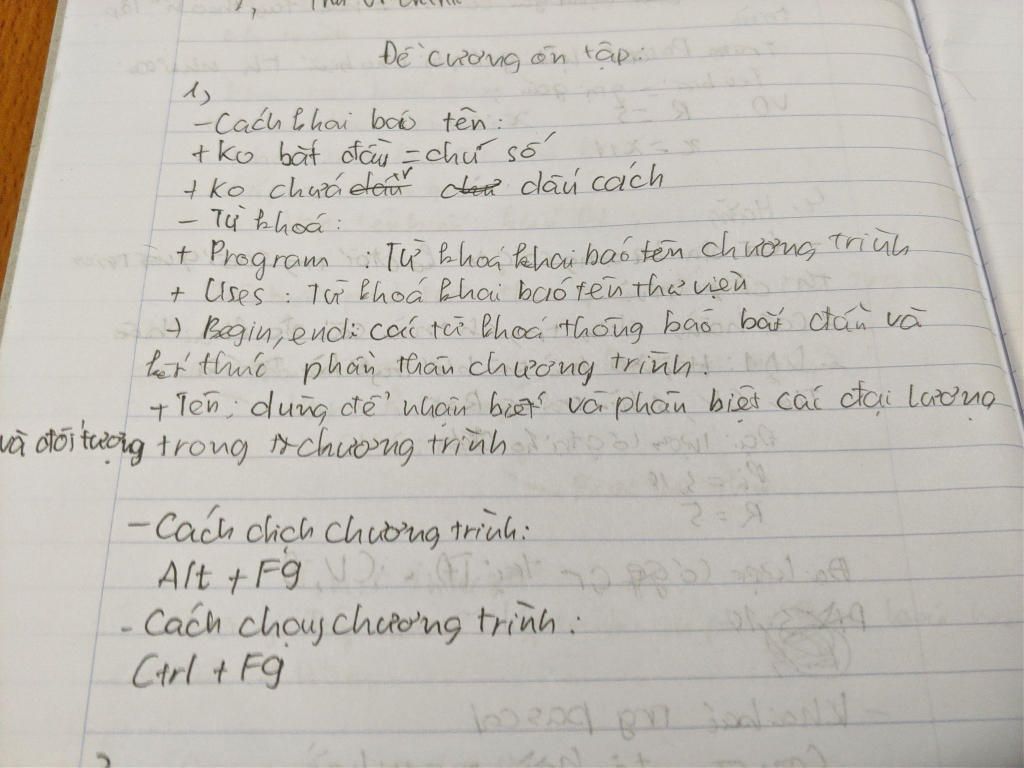 Đề cương ôn tập:
1,
- Cách khai báo tên:
+ Ko bắt đầu = chữ số
+ Ko chứa dấu cách
- Từ khoá:
+ Program : Từ khoá khai báo tên chương trình
+ Uses : Từ khoá khai báo tên thư viện
+ Begin, end: các từ khoá thông báo bắt đầu và
kết thúc phần thân chương trình.
+ Tên: dùng để nhận biết và phân biệt các đại lượng
và đối tượng trong chương trình
- Cách dịch chương trình:
Alt + F9
- Cách chạy chương trình:
Ctrl + F9